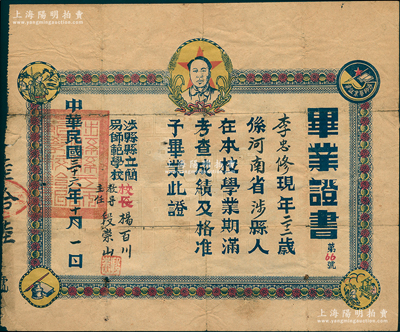 上海阳明拍卖
www.yangmingauction.com
畢業證書
第66號
李忠修現年二三歲
係河南省涉縣人
在本校學業期滿
考查成績及格准
予畢業此證
涉縣縣立簡
易師範學校
校長 楊百川
教導主任 段崇山
中華民國三十六年十月一日